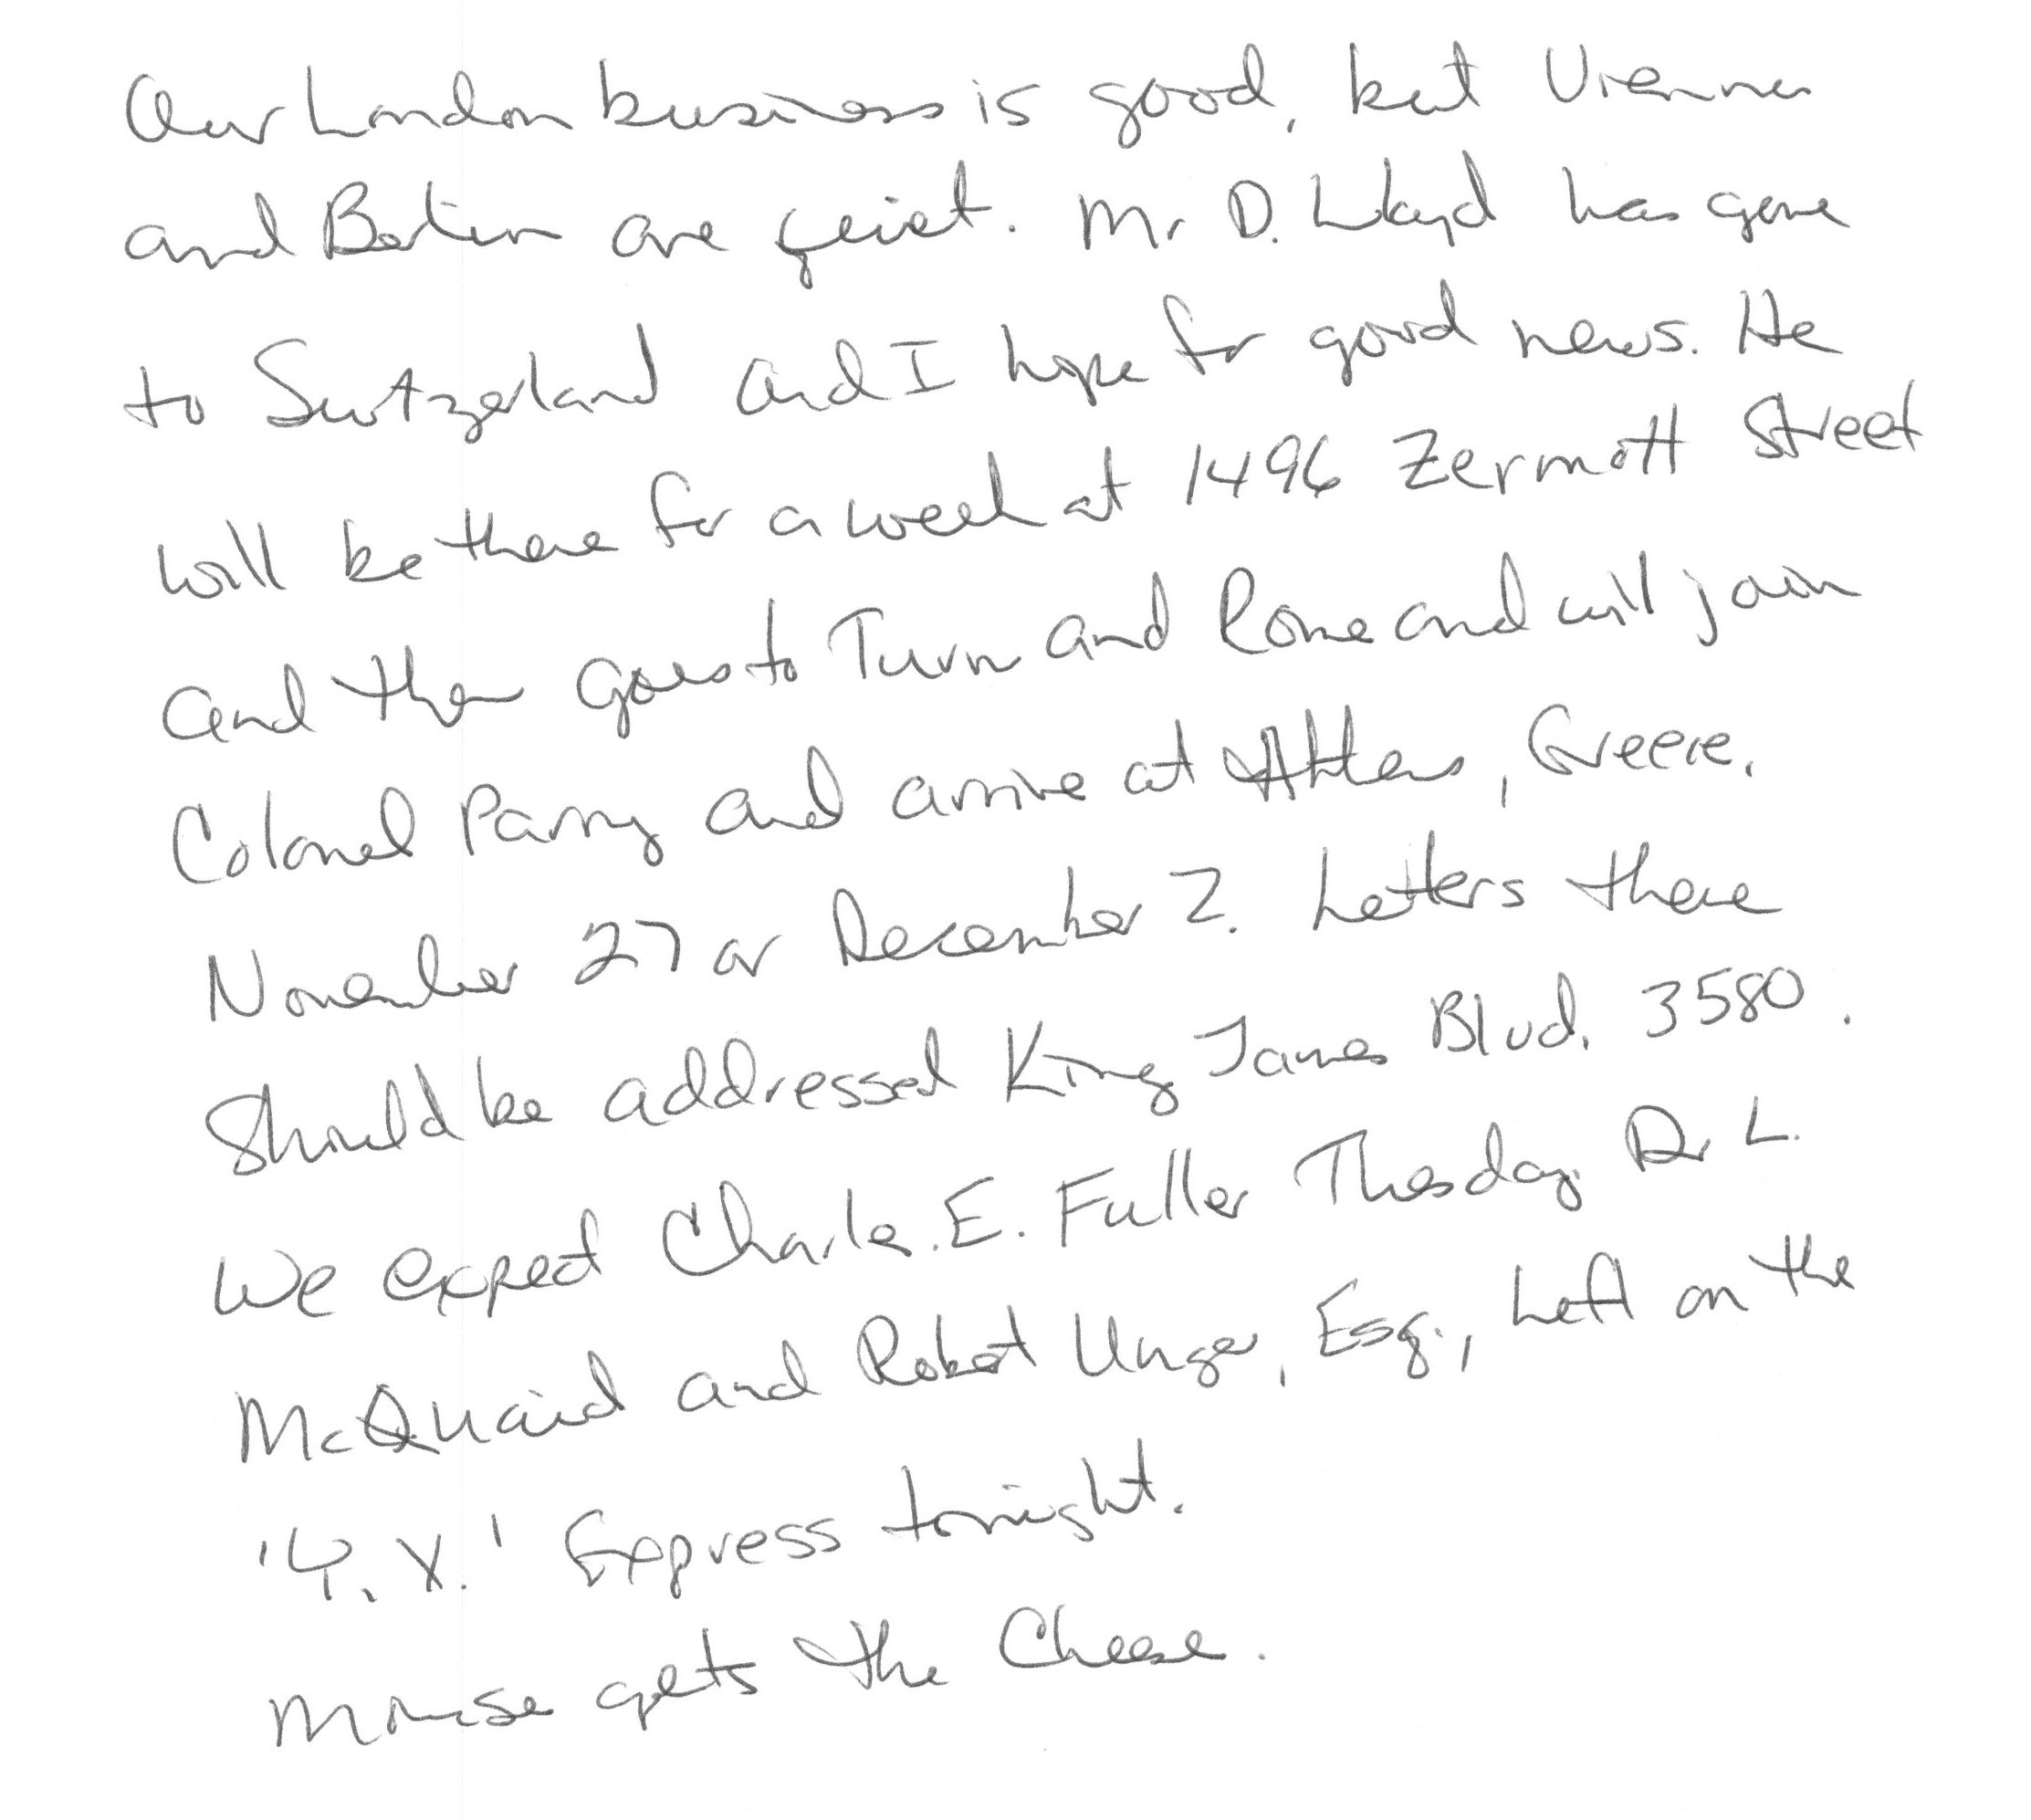 Our London business is good, but Vienna
and Berlin are quiet. Mr D. Lloyd has gone
to Switzerland and I hope for good news. He
will be there for a week at 1496 Zermott Street
and then goes to Turin and Rome and will join
Colonel Parry and arrive at Athens, Greece,
November 27 or December 2. Letters there
should be addressed King James Blvd. 3580.
We expect Charles E. Fuller Thesday. Dr L.
McQuaid and Robert Unger, Esq., left on the
'Y. X.' Express tonight.
Mouse gets the Cheese.